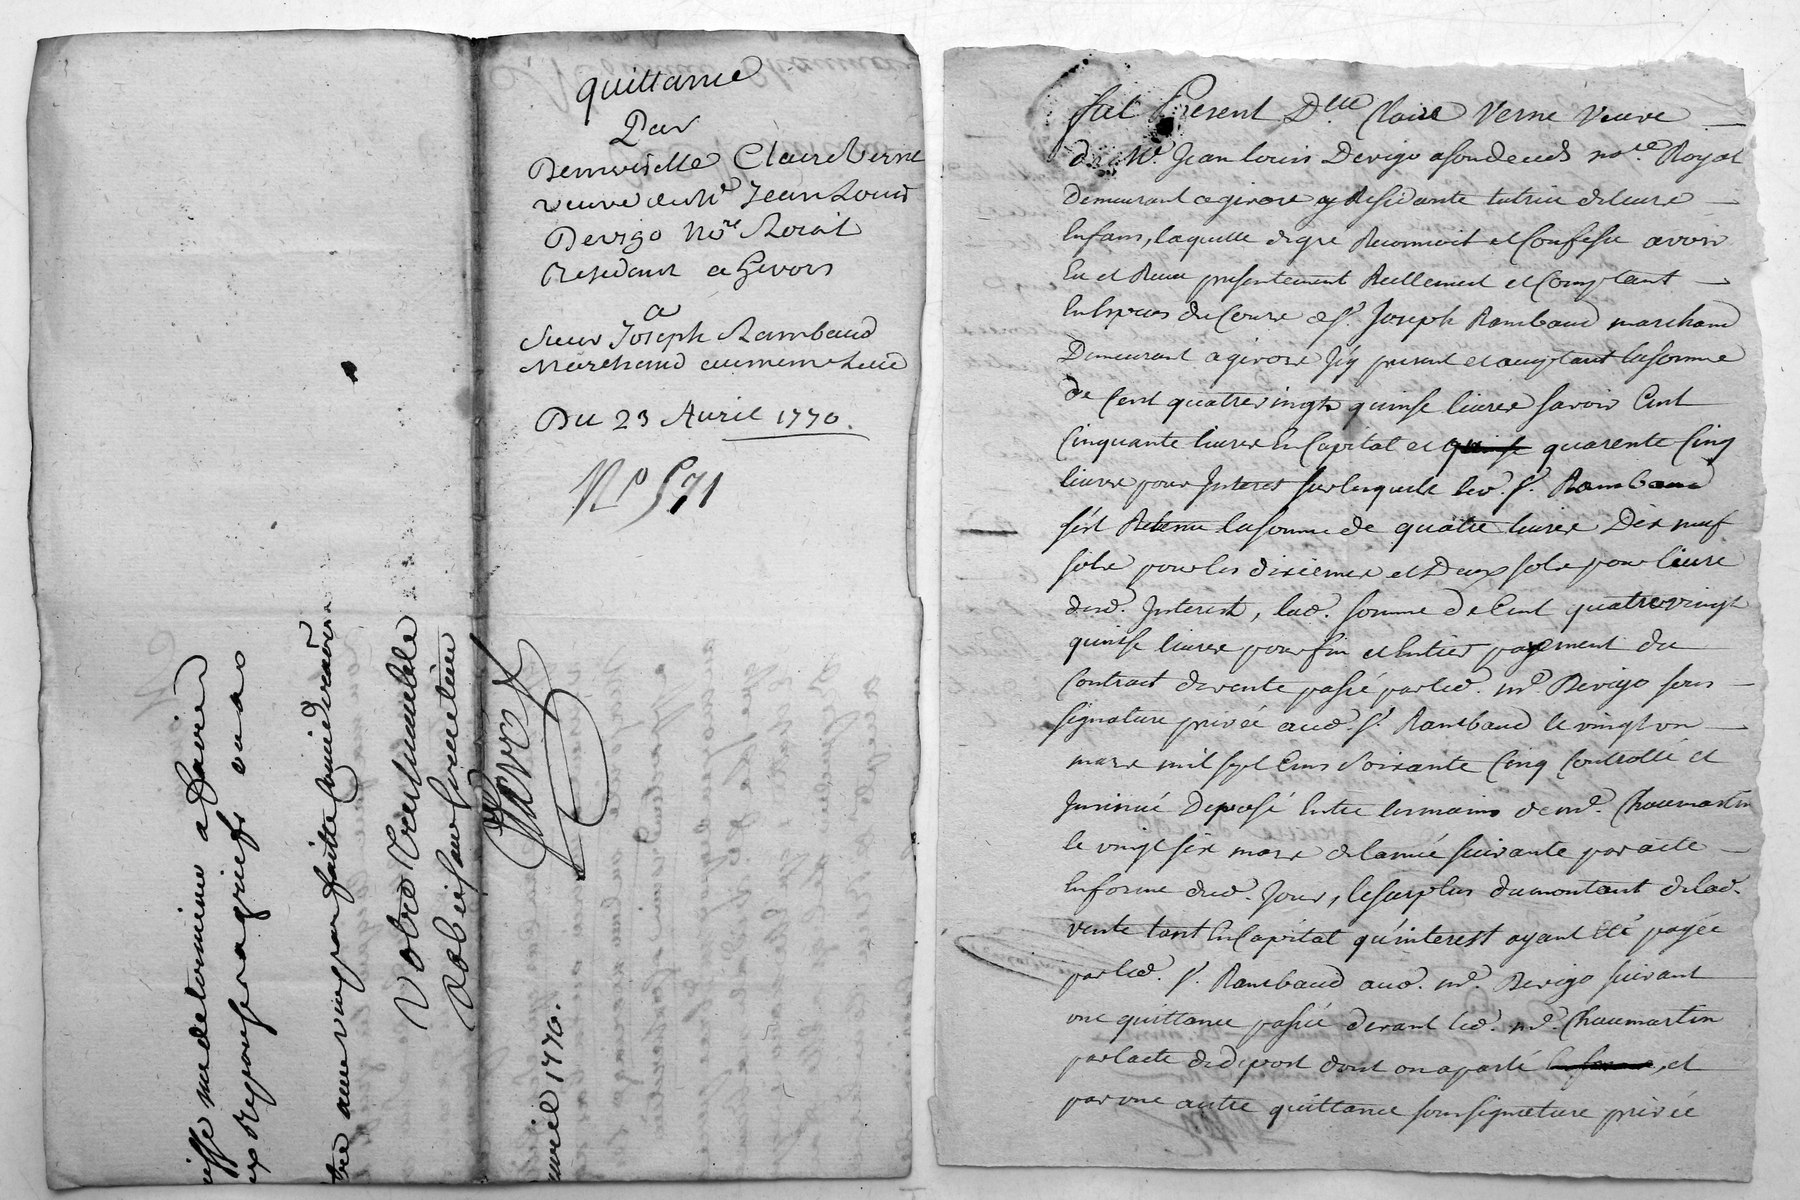 quittance
Par
Demoiselle Claire Verne
veuve de Me Jean Louis
Devigo Nore Roial
Residant a Givors
a
Sieur Joseph Rambaud
Marchand au meme Lieu
Du 23 Avril 1770.
No 571
avril 1770.
Votre tres humble
fut Present Dlle Claire Verne veuve
de Me. Jean Louis Devigo asondeceds nore. Royal
Demeurant a givors y Residante tutrice de leurs
Enfans, laquelle de gre Reconnoit et Confesse avoir
Eu et Receu presentement Reellement et Comptant
En Especes du Cours de Sr. Joseph Rambaud marchand
Demeurant a givors icy present et aceptant la somme
de Cent quatrevingt quinse livres savoir Cent
Cinquante livres En Capital et quinse quarente Cinq
livres pour Interest sur lesquels led. Sr. Rambaud
s'est Retenu la somme de quatre livres Dix neuf
sols pour les dixiemes et Deux sols pour livre
dud. Interest, lad. somme de Cent quatrevingt
quinse livres pour fin et Entier payement du
Contract de vente passé par led. me. Devigo sous
signature privée aud. Sr. Rambaud le vingt un
mars mil sept Cens Soixante Cinq Controllé et
Insinué Deposé Entre les mains de me. Chaumartin
le vingt six mars de l'année suivante par acte
En forme dud. Jour, le surplus du montant de lad.
vente tant En Capital qu'interest ayant Eté payée
par led. Sr. Rambaud aud. me. Devigo suivant
une quittance passée devant led. me. Chaumartin
par l'acte de depost dont on a parlé , et
par une autre quittance sous signature privée